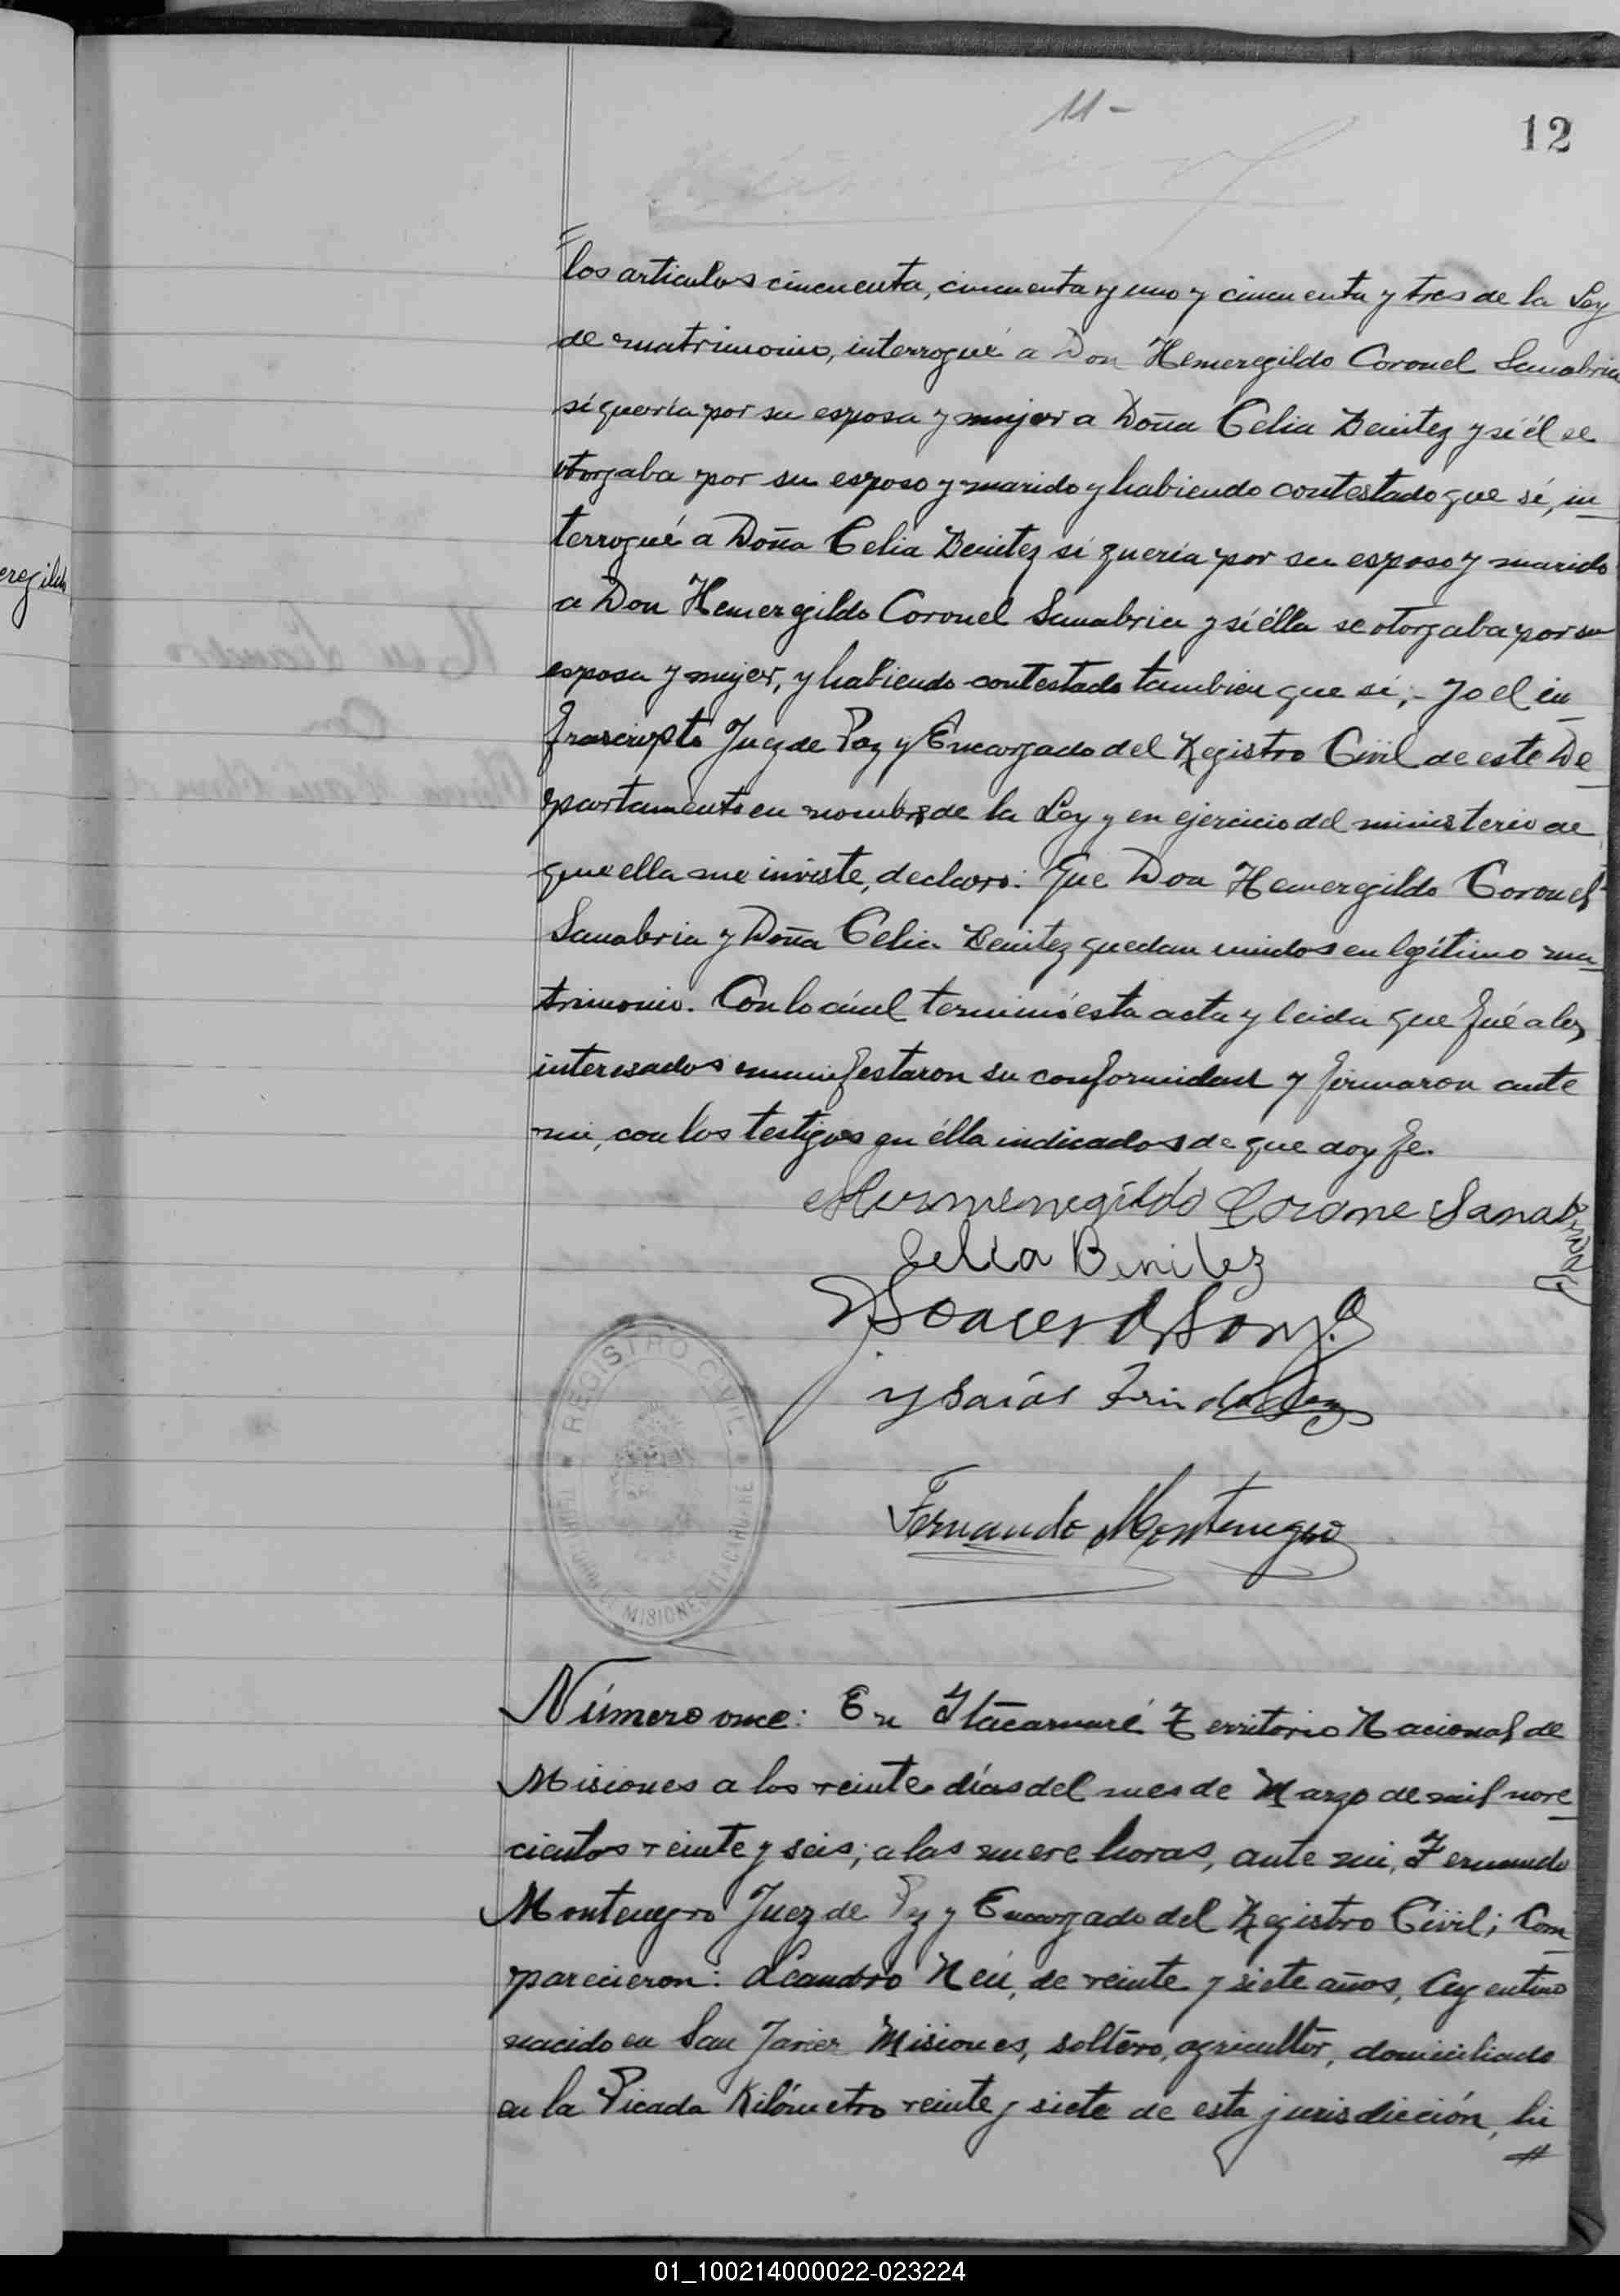 11-
12
los articulos cincuenta, cincuenta y uno y cincuenta y tres de la Ley
de matrimonio, interrogué a Don Hemeregildo Coronel Sanabria
si quería por su esposa y mujer a Doña Celia Benitez y si él se
otorgaba por su esposo y marido y habiendo contestado que sí, in
terrogué a Doña Celia Benitez si quería por su esposo y marido
eregildo
a Don Hemeregildo Coronel Sanabria y si élla se otorgaba por su
esposa y mujer, y habiendo contestado tambien que sí;- yo el in
frascripto Juez de Paz y Encargado del Registro Civil de este De
partamento en nombre de la Ley y en ejercicio del ministerio de
que ella me inviste, declaro: Que Don Hemeregildo Coronel
Sanabria y Doña Celia Benitez quedan unidos en legítimo ma
trimonio. Con lo cúal terminó esta acta y leida que fué a los
interesados manifestaron su conformidad y firmaron ante
mi, con los testigos en élla indicados de que doy fe.
Hermenegildo Corone Sanabria
Celia Benitez
Ysaías
Fernando Montenegro
REGISTRO CIVIL
TERRITORIO DE MISIONES ITACARUARE
Número once: En Itacaruaré Territorio Nacional de
Misiones a los veinte días del mes de Marzo de mil nove
cientos veinte y seis; a las nueve horas, ante mi, Fernando
Montenegro Juez de Paz y Encargado del Registro Civil; Com
parecieron: Leandro Neú, de veinte y siete años, Argentino
nacido en San Javier Misiones, soltero, agricultor, domiciliado
en la Picada Kilómetro veinte y siete de esta jurisdicción, hi
01_100214000022-023224